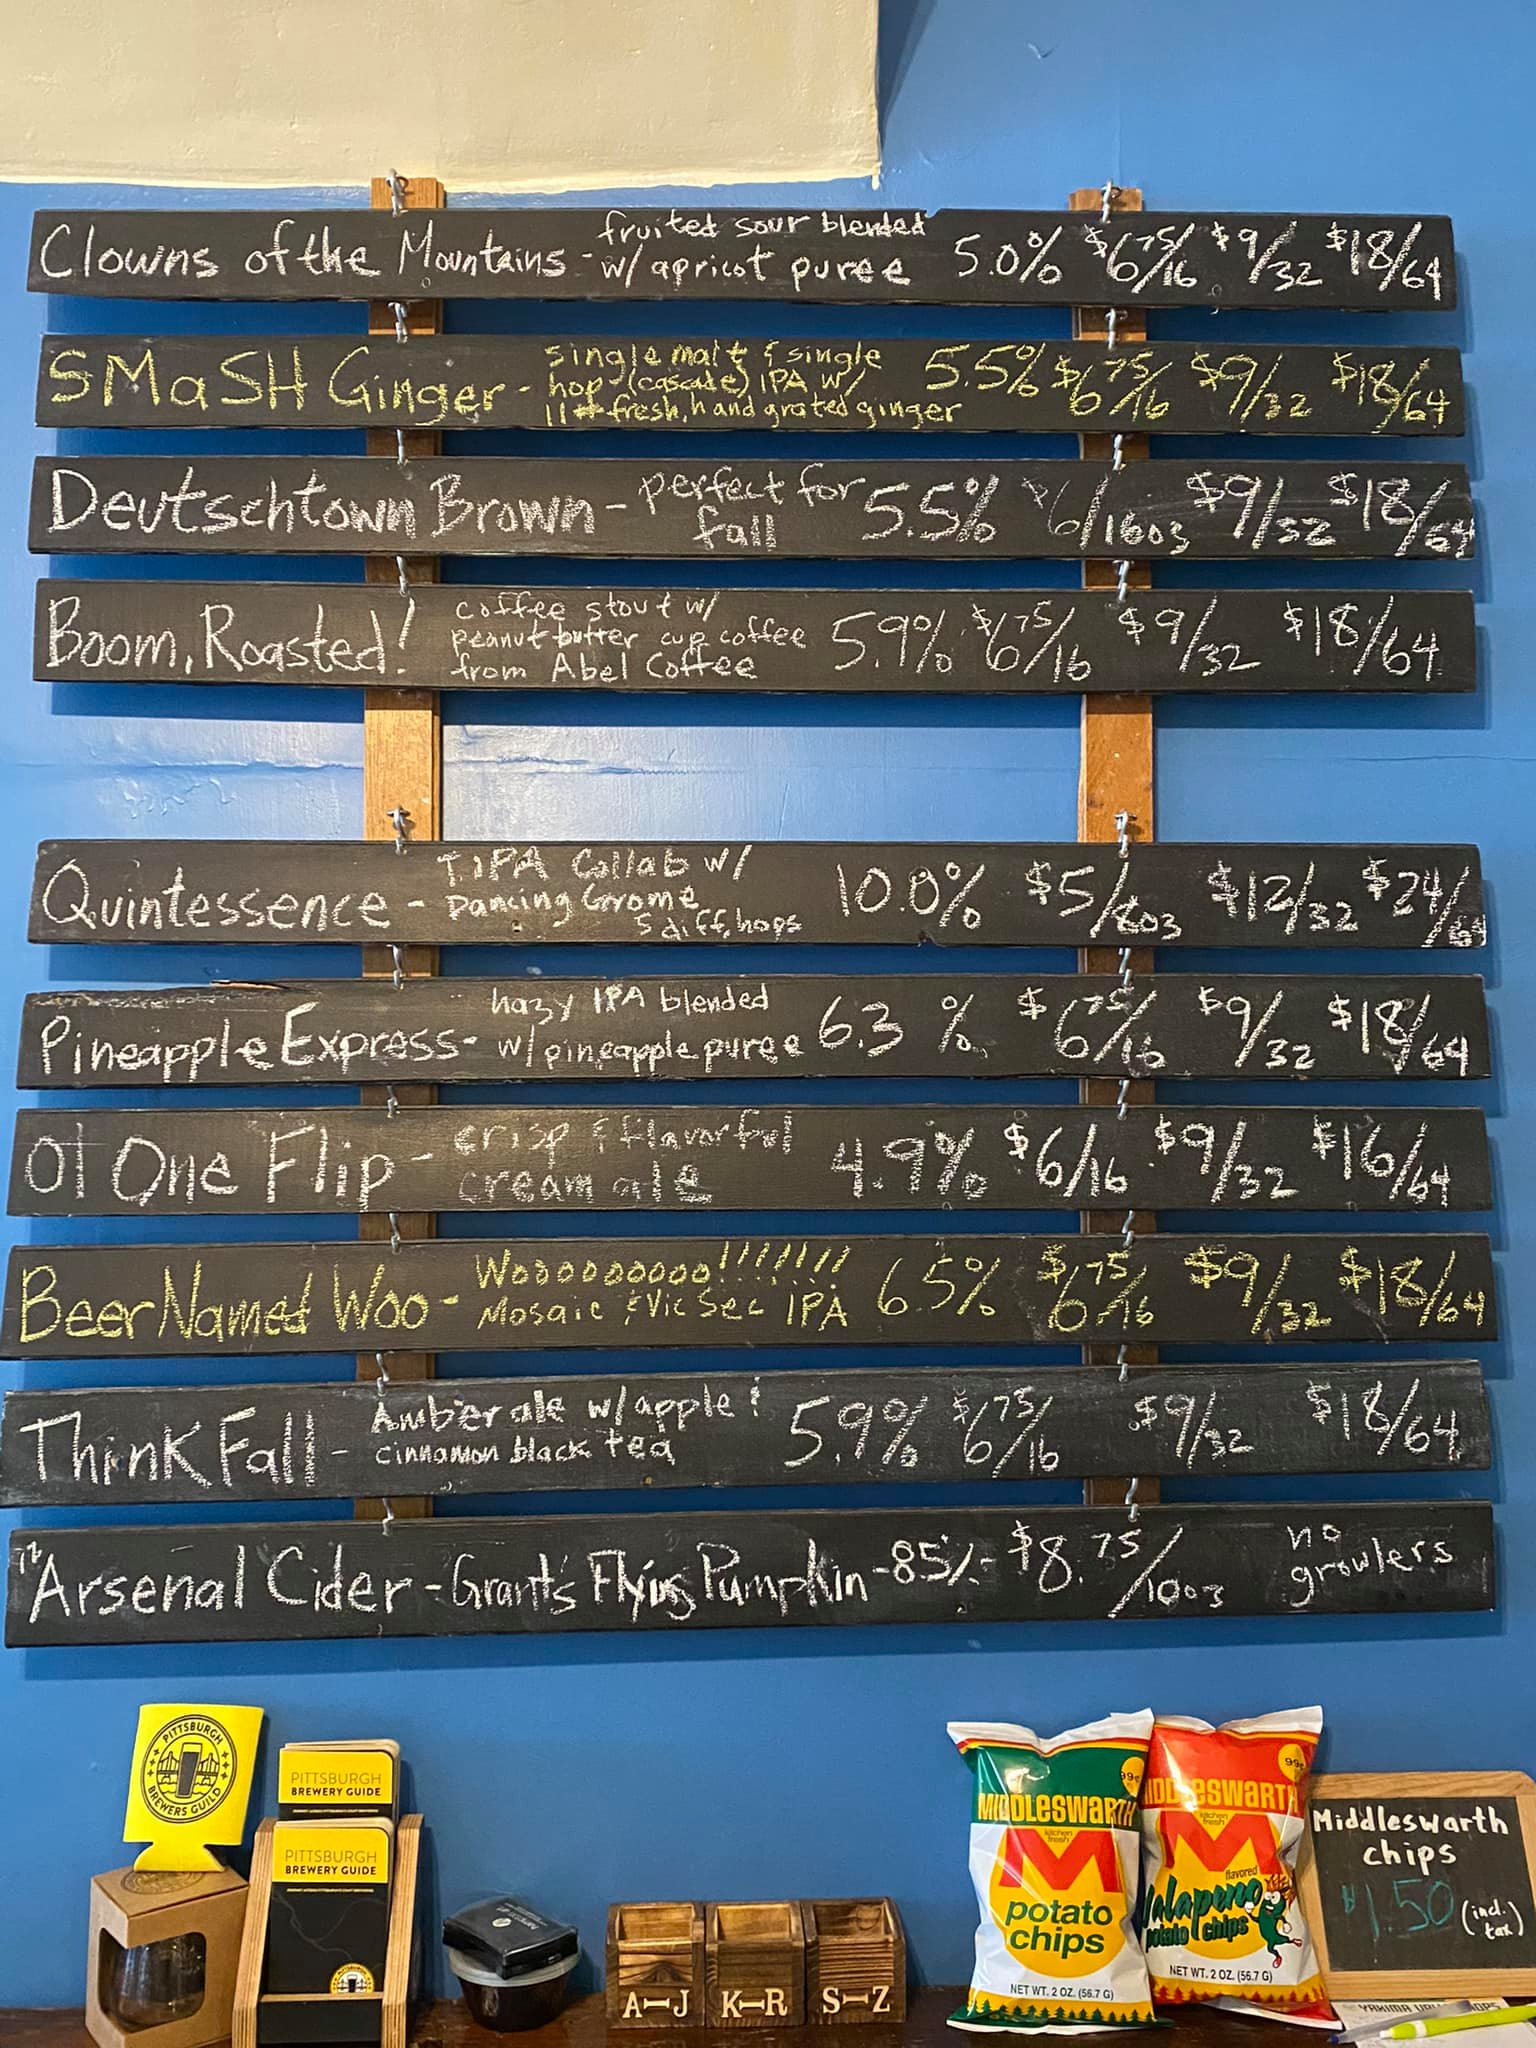 Clowns of the Mountains - fruited sour blended
w/ apricot puree 5.0% $6.75/16 $9/32 $18/64
SMaSH Ginger - single malt & single
hop (cascade) IPA w/
11# fresh, hand grated ginger 5.5% $6.75/16 $9/32 $18/64
Deutschtown Brown - perfect for
fall 5.5% $6/16oz $9/32 $18/64
Boom, Roasted! coffee stout w/
peanut butter cup coffee
from Abel Coffee 5.9% $6.75/16 $9/32 $18/64
Quintessence - TIPA Collab w/
Dancing Gnome
5 diff. hops 10.0% $5/8oz $12/32 $24/64
Pineapple Express - hazy IPA blended
w/ pineapple puree 6.3 % $6.75/16 $9/32 $18/64
Ol One Flip - crisp & flavorful
cream ale 4.9% $6/16 $9/32 $16/64
Beer Named Woo - Wooooooooo!!!!!!!
Mosaic & Vic Sec IPA 6.5% $6.75/16 $9/32 $18/64
Think Fall - Amber ale w/ apple &
cinnamon black tea 5.9% $6.75/16 $9/32 $18/64
Arsenal Cider - Grant's Flying Pumpkin - 8.5% - $8.75/10oz no
growlers
PITTSBURGH
BREWERS GUILD
PITTSBURGH
BREWERY GUIDE
PITTSBURGH
BREWERY GUIDE
A-J
K-R
S-Z
99¢
MIDDLESWARTH
kitchen
fresh
M
potato
chips
NET WT. 2 OZ. (56.7 G)
99¢
MIDDLESWARTH
kitchen
fresh
M
flavored
Jalapeno
potato chips
NET WT. 2 OZ. (56.7 G)
Middleswarth
chips
$1.50 (incl.
tax)
YAKIMA